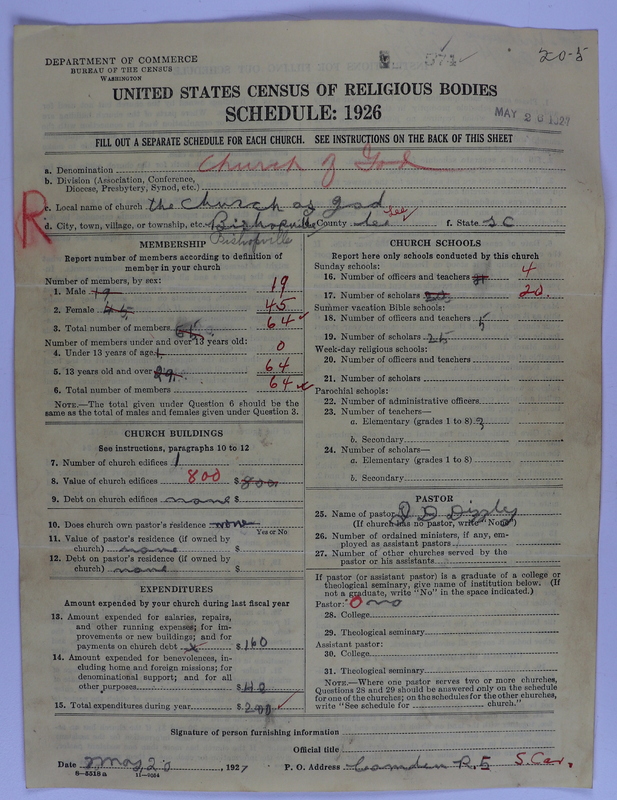 DEPARTMENT OF COMMERCE
BUREAU OF THE CENSUS
WASHINGTON
574
20-5
UNITED STATES CENSUS OF RELIGIOUS BODIES
SCHEDULE: 1926
MAY 2 1927
FILL OUT A SEPARATE SCHEDULE FOR EACH CHURCH. SEE INSTRUCTIONS ON THE BACK OF THIS SHEET
R
a. Denomination Church of God
b. Division (Association, Conference, Diocese, Presbytery, Synod, etc.)
c. Local name of church the Church os god
d. City, town, village, or township, etc. Bishopville County lee Lee f. State S C
Bishopville
MEMBERSHIP
Report number of members according to definition of member in your church
Number of members, by sex:
1. Male 19 19
2. Female 45 45
3. Total number of members 64
Number of members under and over 13 years old:
4. Under 13 years of age 0
5. 13 years old and over 64
6. Total number of members 64
NOTE.—The total given under Question 6 should be the same as the total of males and females given under Question 3.
CHURCH BUILDINGS
See instructions, paragraphs 10 to 12
7. Number of church edifices 1
8. Value of church edifices 800 $ 800
9. Debt on church edifices none $
10. Does church own pastor's residence none
Yes or No
11. Value of pastor's residence (if owned by church) none $
12. Debt on pastor's residence (if owned by church) none $
EXPENDITURES
Amount expended by your church during last fiscal year
13. Amount expended for salaries, repairs, and other running expenses; for improvements or new buildings; and for payments on church debt $ 160
14. Amount expended for benevolences, including home and foreign missions; for denominational support; and for all other purposes $ 40
15. Total expenditures during year $ 200
CHURCH SCHOOLS
Report here only schools conducted by this church
Sunday schools:
16. Number of officers and teachers 4
17. Number of scholars 20
Summer vacation Bible schools:
18. Number of officers and teachers 5
19. Number of scholars 25
Week-day religious schools:
20. Number of officers and teachers
21. Number of scholars
Parochial schools:
22. Number of administrative officers
23. Number of teachers—
a. Elementary (grades 1 to 8)
b. Secondary
24. Number of scholars—
a. Elementary (grades 1 to 8)
b. Secondary
PASTOR
25. Name of pastor
(If church has no pastor, write "None")
26. Number of ordained ministers, if any, employed as assistant pastors
27. Number of other churches served by the pastor or his assistants
If pastor (or assistant pastor) is a graduate of a college or theological seminary, give name of institution below. (If not a graduate, write "No" in the space indicated.)
Pastor: O no
28. College
29. Theological seminary
Assistant pastor:
30. College
31. Theological seminary
NOTE.—Where one pastor serves two or more churches, Questions 28 and 29 should be answered only on the schedule for one of the churches; on the schedules for the other churches, write "See schedule for church."
Signature of person furnishing information
Official title
Date may 20, 1927 P. O. Address Camden R. 5 S. Car.
8-5518a 11-9054